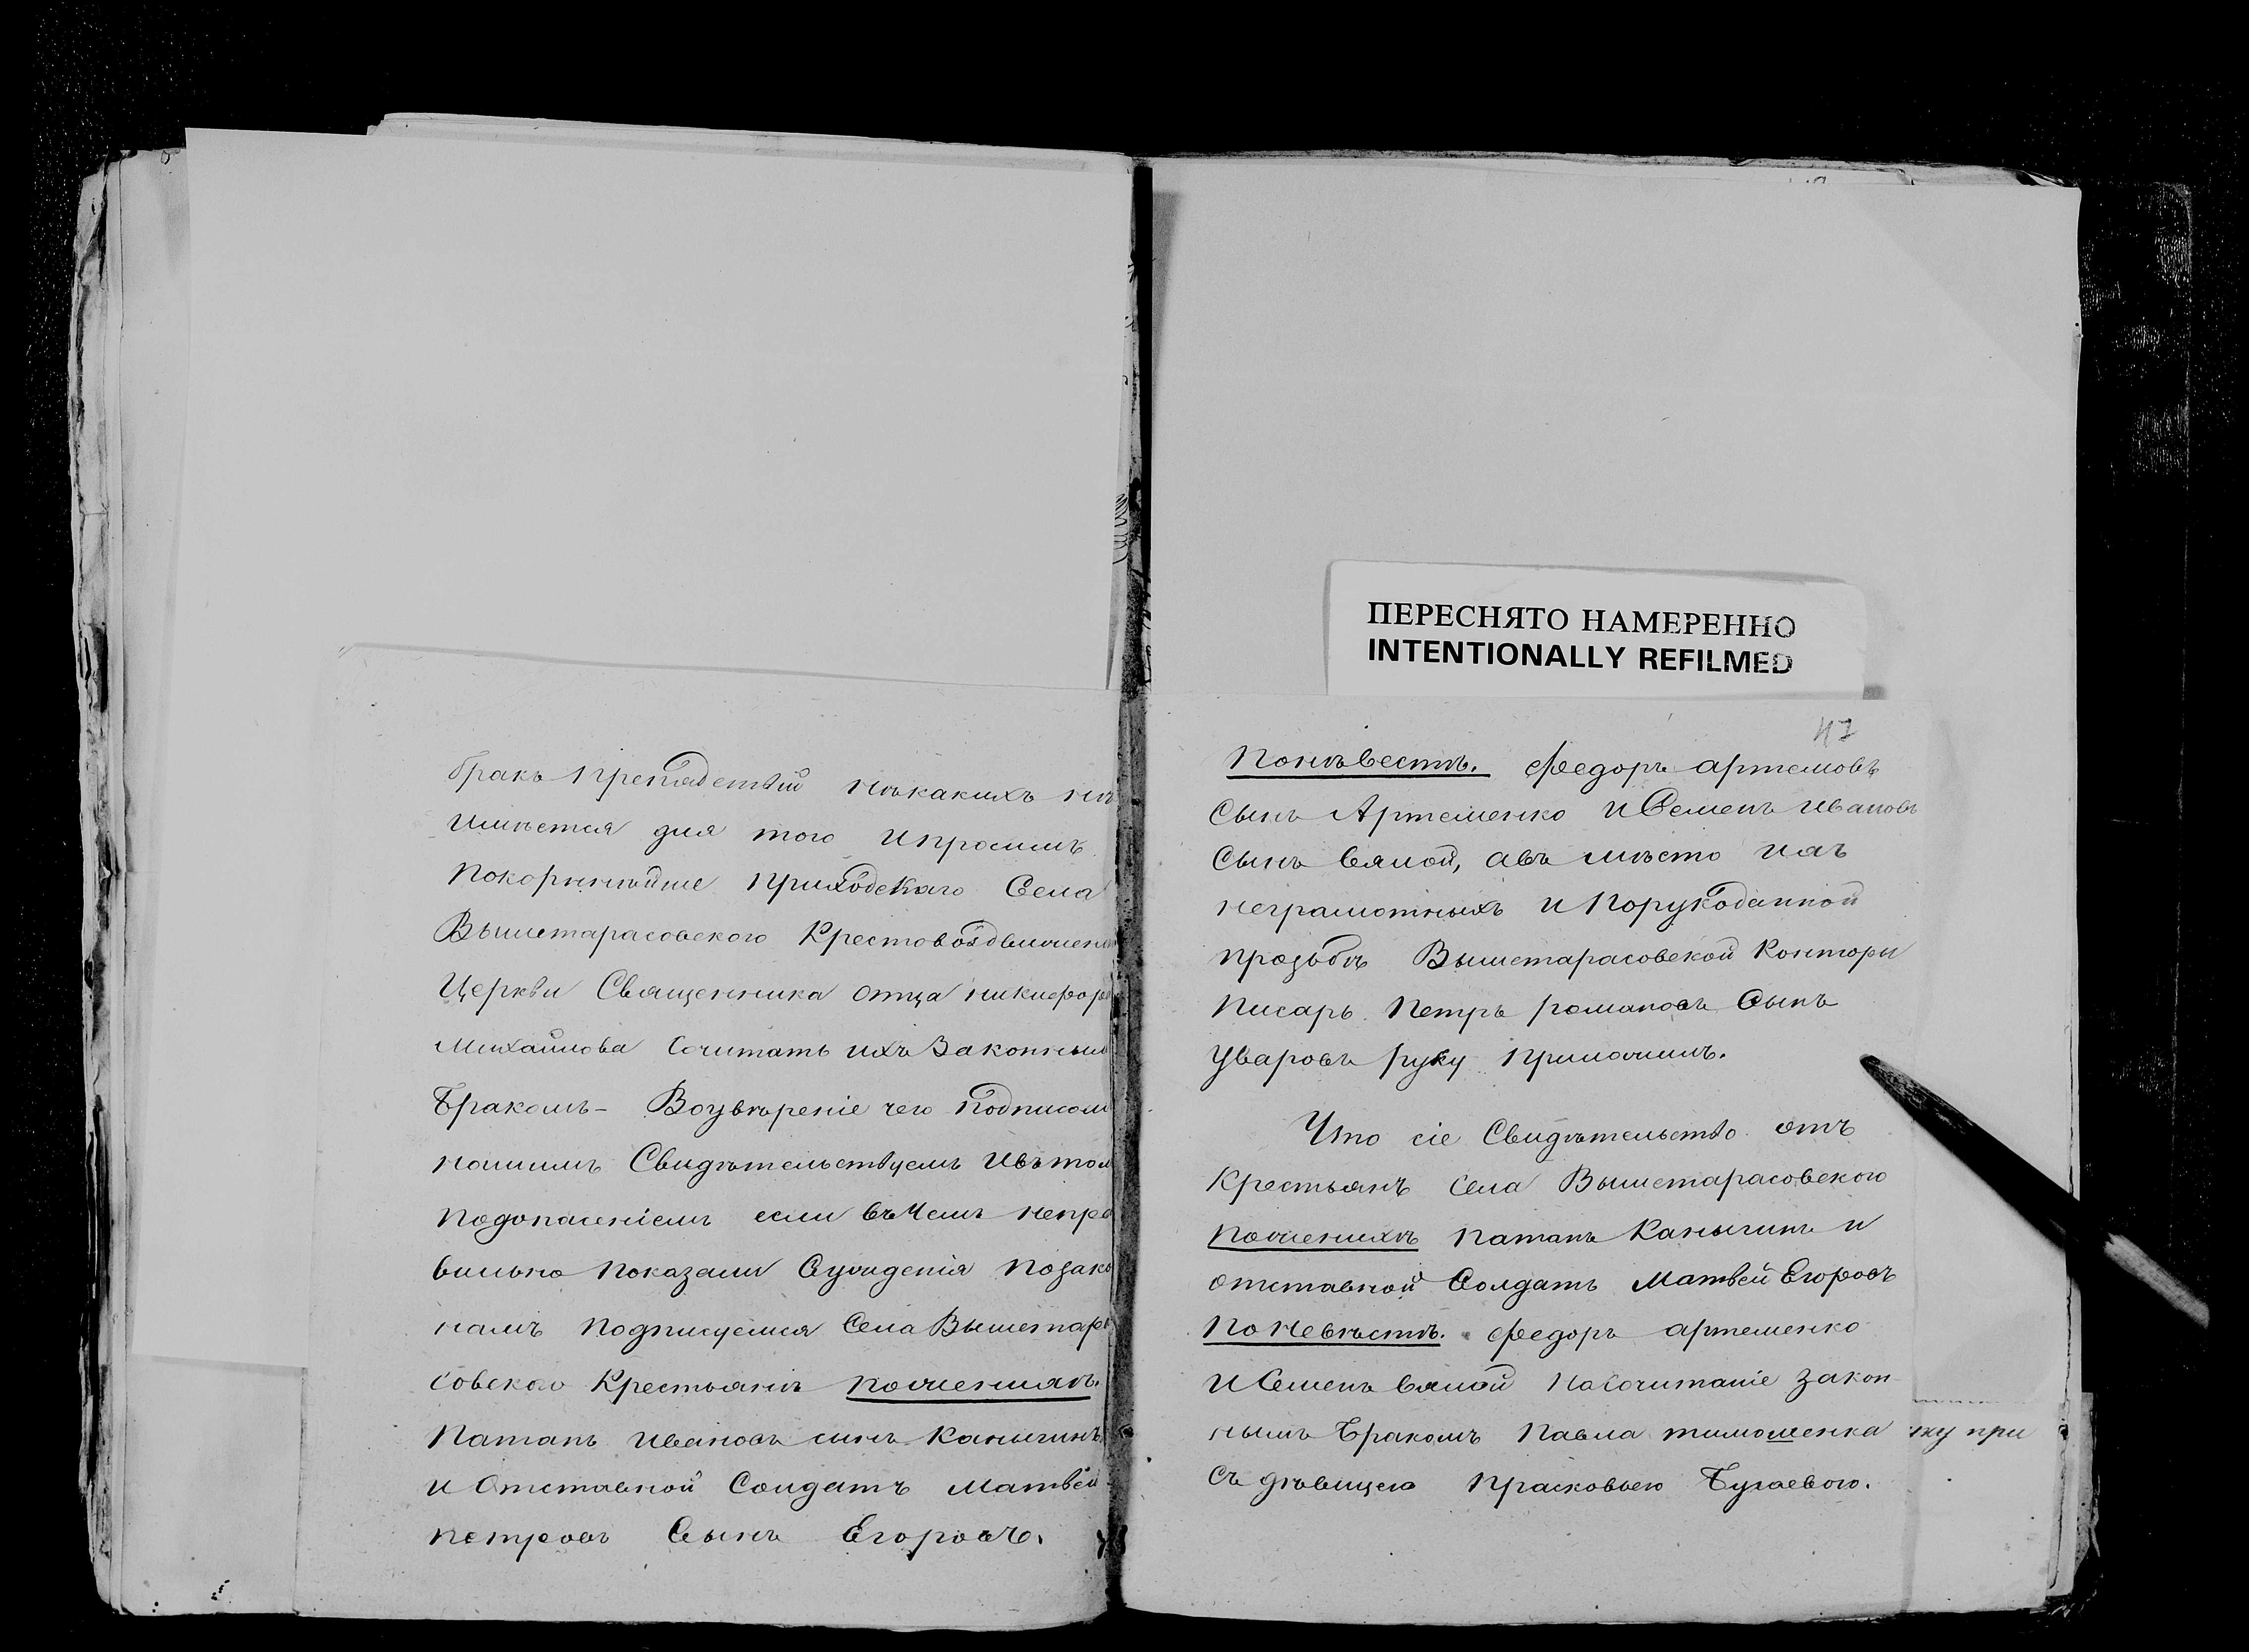 бракъ препядствій нѣкакихъ нѣ
имѣется для того и просимъ
покорнѣйше приходскаго Села
Вышетарасовского Крестовоздвижен
Церкви Священника отца никифора
Михайлова Сочитать ихъ Законным
Бракомъ – Воувѣреніе чего подписом
нашимъ Свидѣтельствуемъ ивътом
подопасеніемъ если въ чемъ непра
вильно показали Сужденія позако
намъ подписуемся Села Вышетара
совского Крестьянѣ по женихѣ.
Патапъ Ивановъ сынъ Канычинъ
и Отставной Солдатъ Матвей
петровъ Сынъ Егоровъ.
47
ПЕРЕСНЯТО НАМЕРЕННО
INTENTIONALLY REFILMED
Понѣвестѣ. федоръ артемовъ
сынъ Артеменко и Семенъ Ивановъ
Сынъ Вялой, авъ мѣсто ихъ
неграмотныхъ и порукоданной
прозьбѣ Вышетарасовской Конторы
писарь Петръ романовъ Сынъ
Уваровъ руку приложилъ.
Что сіе Свидѣтельство отъ
Крестьянъ Села Вышетарасовского
по женихѣ Патапъ Канычинъ и
отставной Солдатъ Матвей Егоровъ
По невѣстѣ. федоръ артеменко
и Семенъ Вялой На Сочитаніе закон
нымъ Бракомъ Павла тимошенка
съ дѣвицею Прасковьею Бугаевою.
ку при